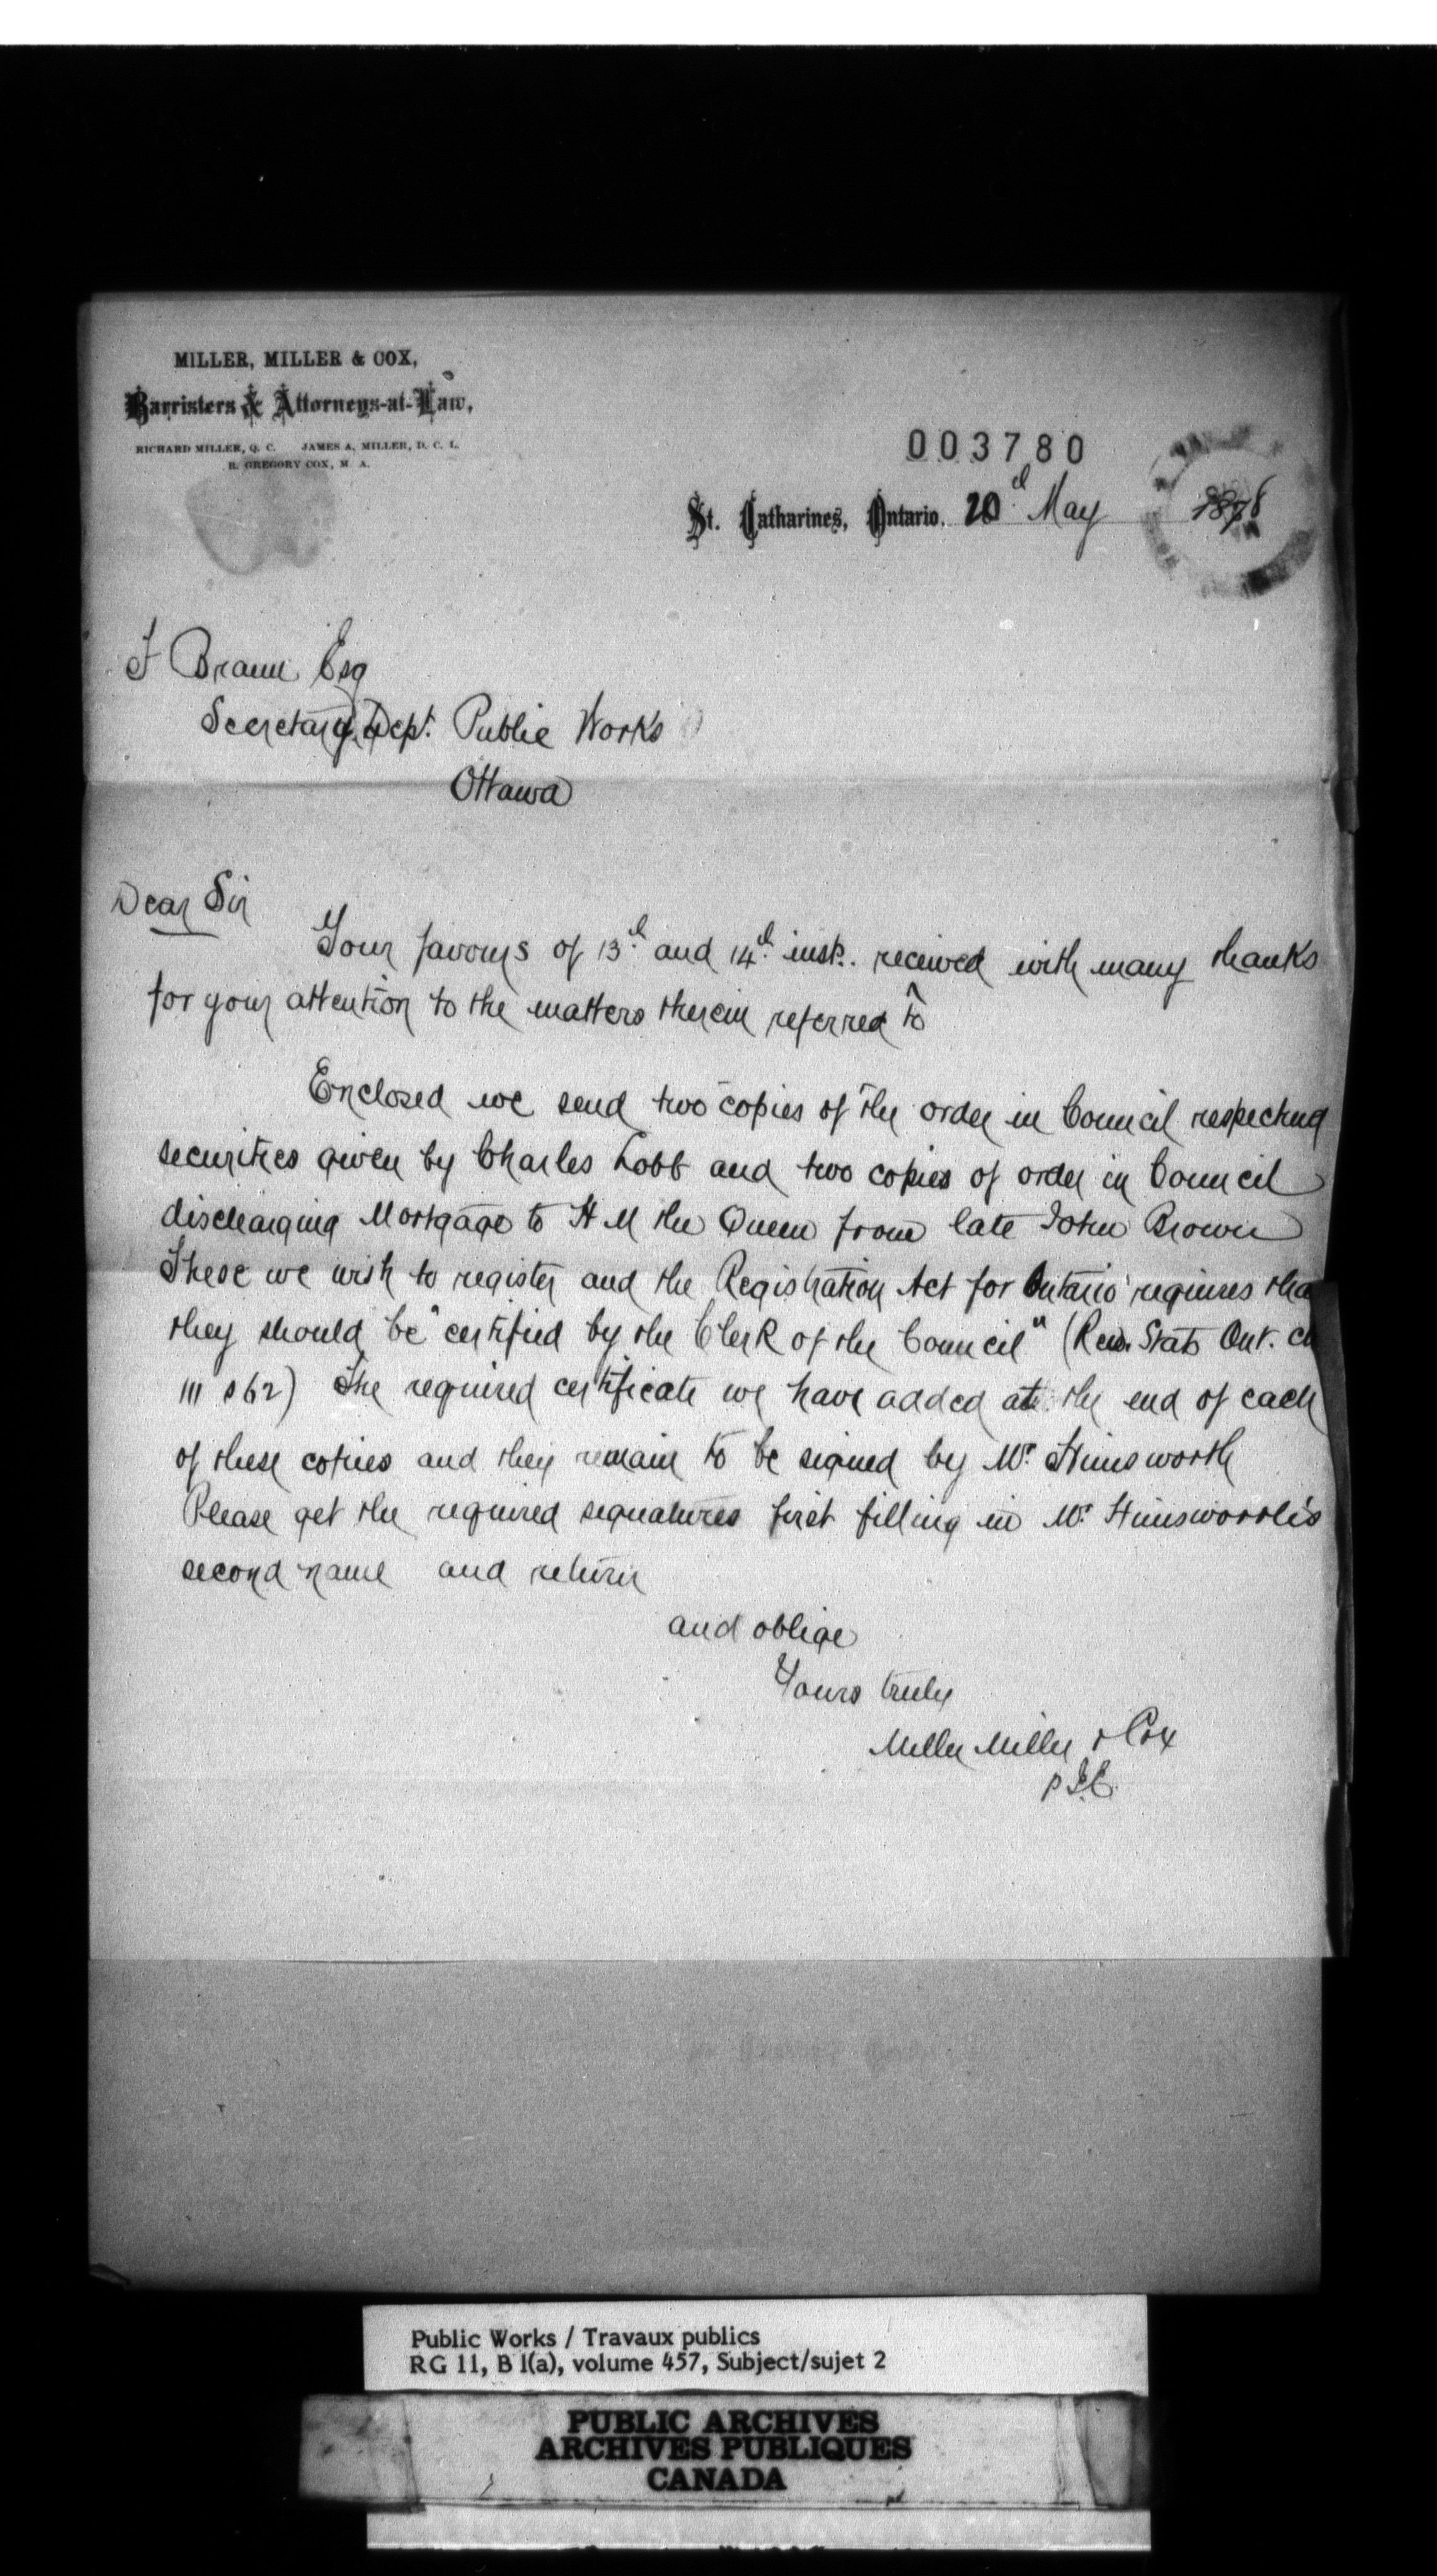 MILLER, MILLER & COX,
Barristers & Attorneys-at-Law,
RICHARD MILLER, Q. C. JAMES A. MILLER, D. C. L.
R. GREGORY COX, M. A.
003780
St. Catharines, Ontario. 20th May 1878
F Braun Esq
Secretary Dept. Public Works
Ottawa
Dear Sir
Your favours of 13th and 14th inst. received with many thanks
for your attention to the matters therein referred to
Enclosed we send two copies of the order in Council respecting
securities given by Charles Lobb and two copies of order in Council
discharging Mortgage to H M the Queen from late John Brown
These we wish to register and the Registration Act for Ontario requires tha
they should be "certified by the Clerk of the Council" (Rev. Stats Ont. ch
111 s 62) The required certificate we have added at the end of each
of these copies and they remain to be signed by Mr. Himsworth
Please get the required signatures first filling in Mr. Himsworth's
second name and return
and oblige
Yours truly
Miller Miller & Cox
Public Works / Travaux publics
RG 11, B 1(a), volume 457, Subject/sujet 2
PUBLIC ARCHIVES
ARCHIVES PUBLIQUES
CANADA